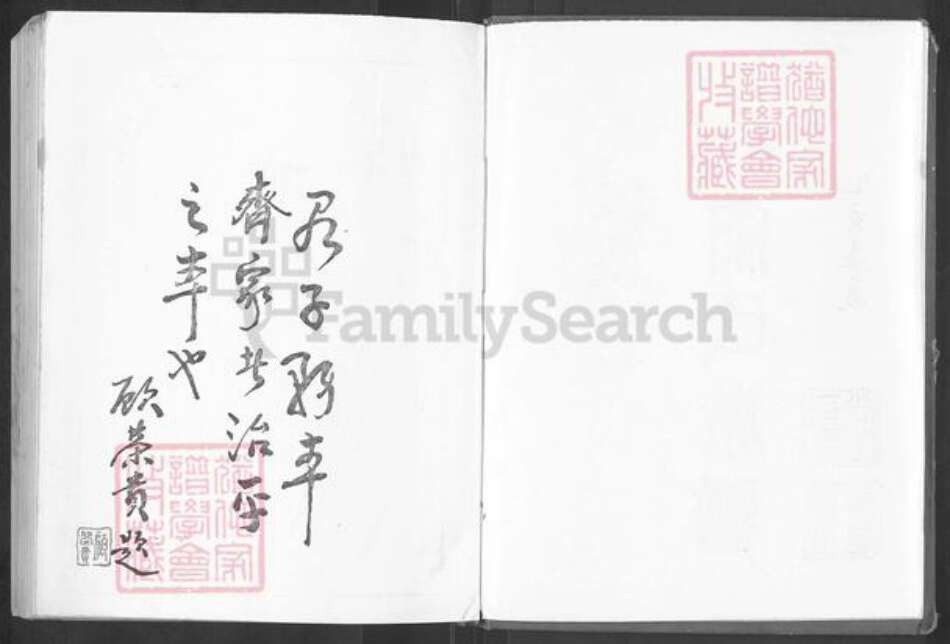 君子務本
齊家者治平
之本也
顧榮貴題
猶他家
譜學會
收藏
猶他家
譜學會
收藏
FamilySearch